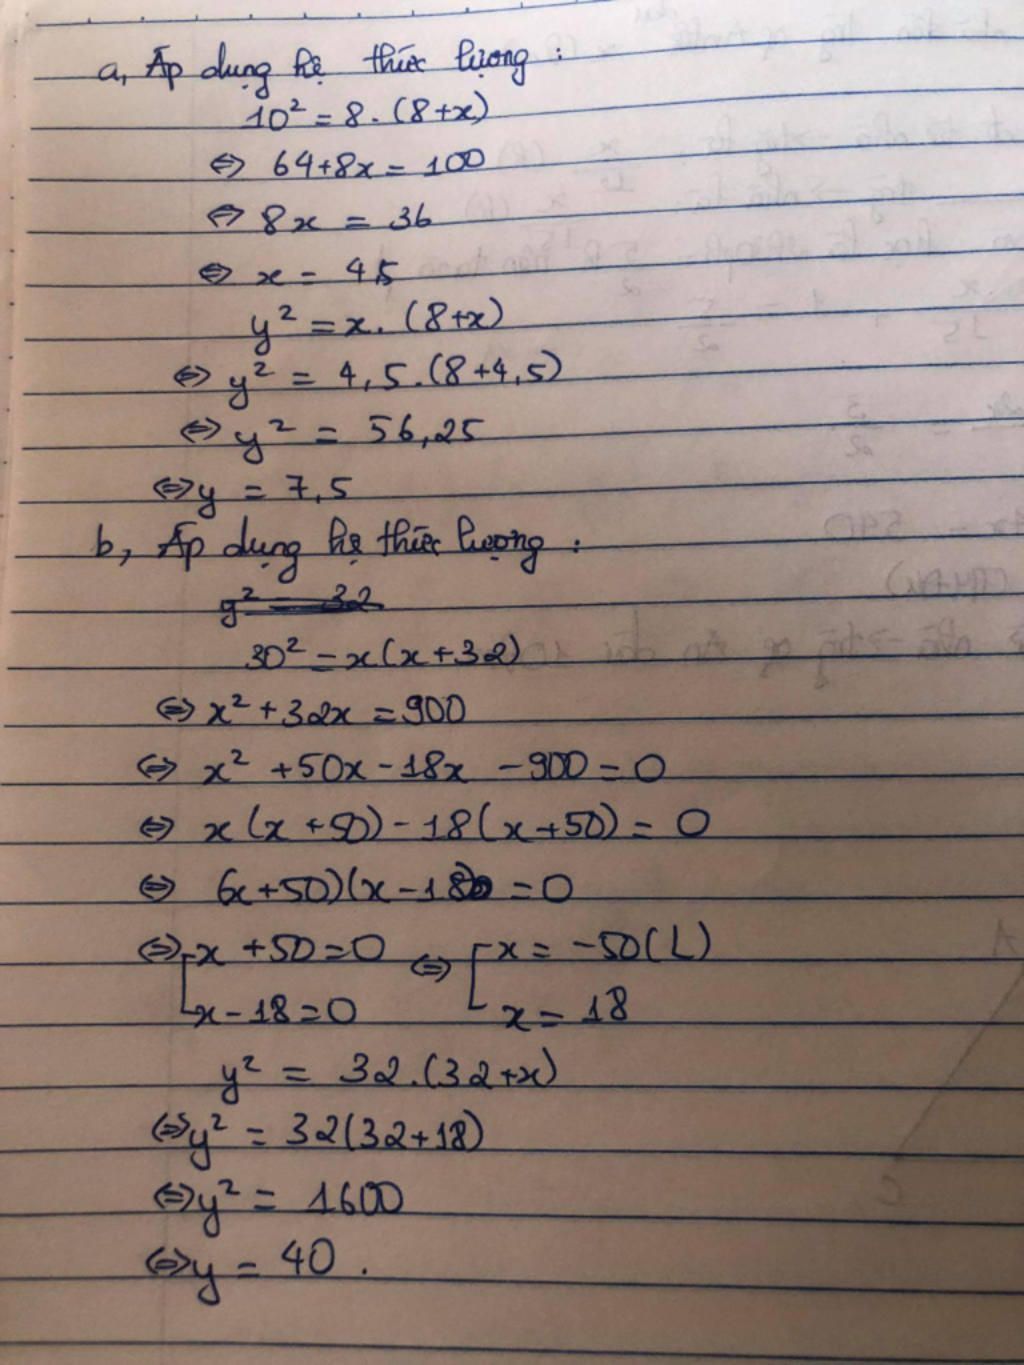 a, Áp dụng hệ thức lượng :
10² = 8. (8+x)
⇔ 64+8x = 100
⇔ 8x = 36
⇔ x = 4,5
y² = x. (8+x)
⇔ y² = 4,5.(8+4,5)
⇔ y² = 56,25
⇔ y = 7,5
b, Áp dụng hệ thức lượng :
y² = 32
30² = x(x+32)
⇔ x² + 32x = 900
⇔ x² + 50x - 18x - 900 = 0
⇔ x(x+50) - 18(x+50) = 0
⇔ (x+50)(x-18) = 0
⇔ [x + 50 = 0 ⇔ [x = -50(L)
x - 18 = 0 x = 18
y² = 32.(32+x)
⇔ y² = 32(32+18)
⇔ y² = 1600
⇔ y = 40 .